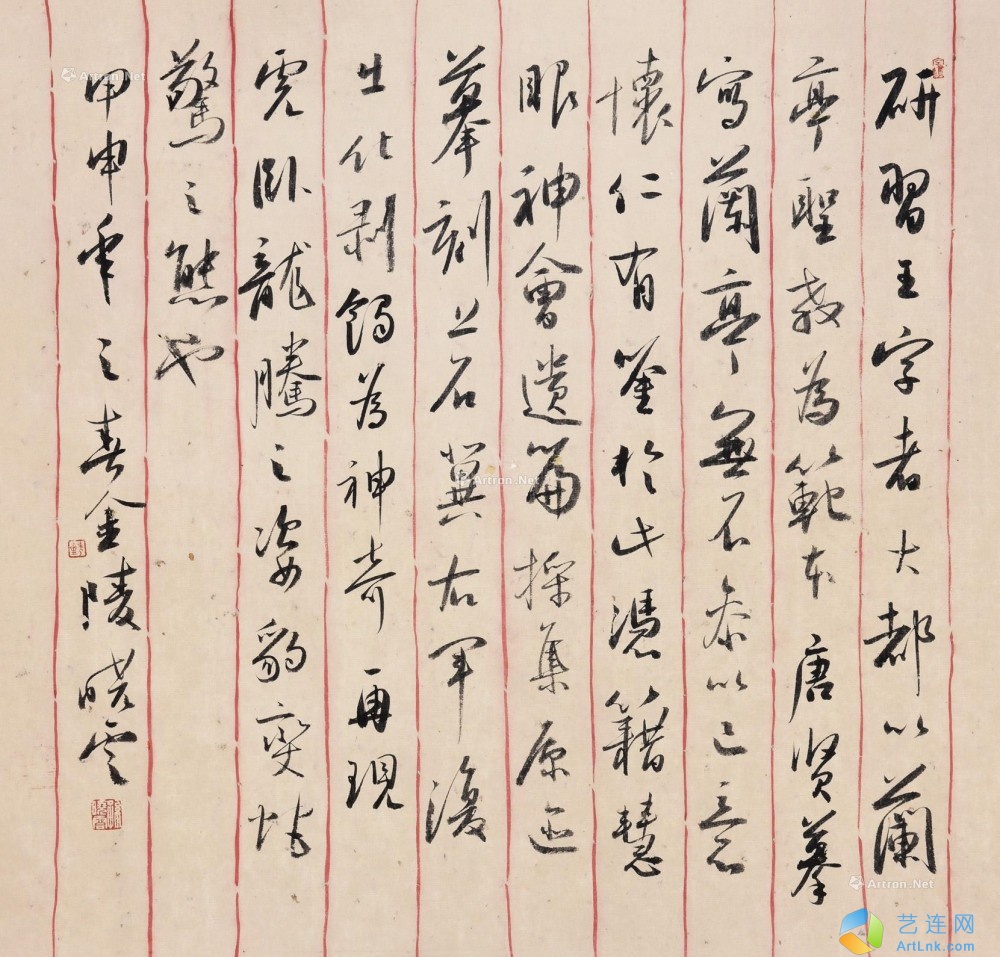 研習王字者大都以蘭
亭聖教為範本唐賢摹
寫蘭亭無不参以己意
懷仁有鉴於此憑籍慧
眼神會遺篇採集原迹
摹刻上石冀右军復
生化剥餲為神奇再現
虎卧龍騰之姿豹变
驚之態也
甲申年之春金陵晓雲
Artron.Net
Artron.Net
Artron.Net
Artron.Net
Artron.Net
艺连网
ArtLnk.com